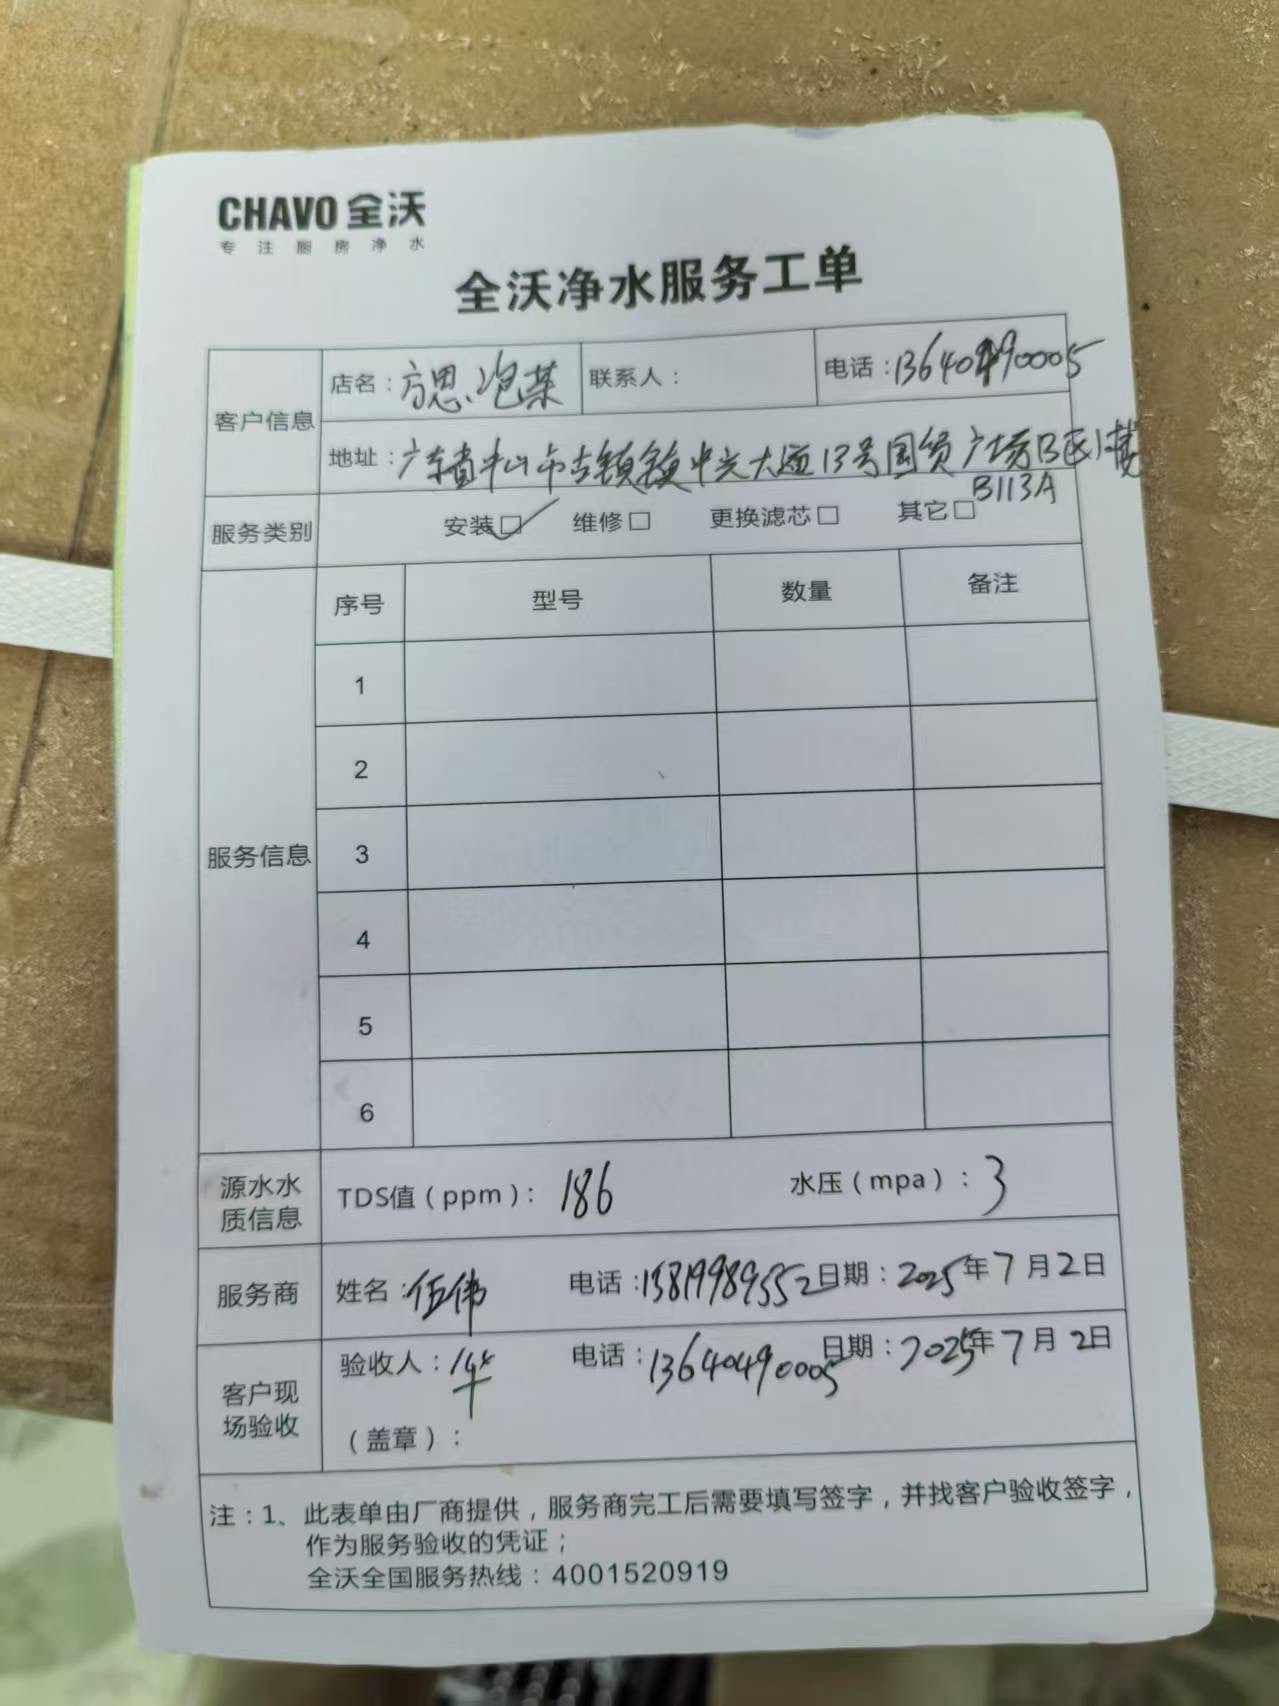 CHAVO 全沃
专注厨房净水
全沃净水服务工单
客户信息
店名：方恩泡菜 联系人： 电话：13640490005
地址：广东省中山市古镇镇中兴大道13号国贸广场B区1楼
B113A
服务类别 安装☑ 维修□ 更换滤芯□ 其它□
服务信息
序号 型号 数量 备注
1
2
3
4
5
6
源水水质信息 TDS值（ppm）：186 水压（mpa）：3
服务商 姓名：伍伟 电话：13819989552 日期：2025年7月2日
客户现场验收 验收人： 电话：13640490005 日期：2025年7月2日
（盖章）：
注：1、此表单由厂商提供，服务商完工后需要填写签字，并找客户验收签字，
作为服务验收的凭证；
全沃全国服务热线：4001520919